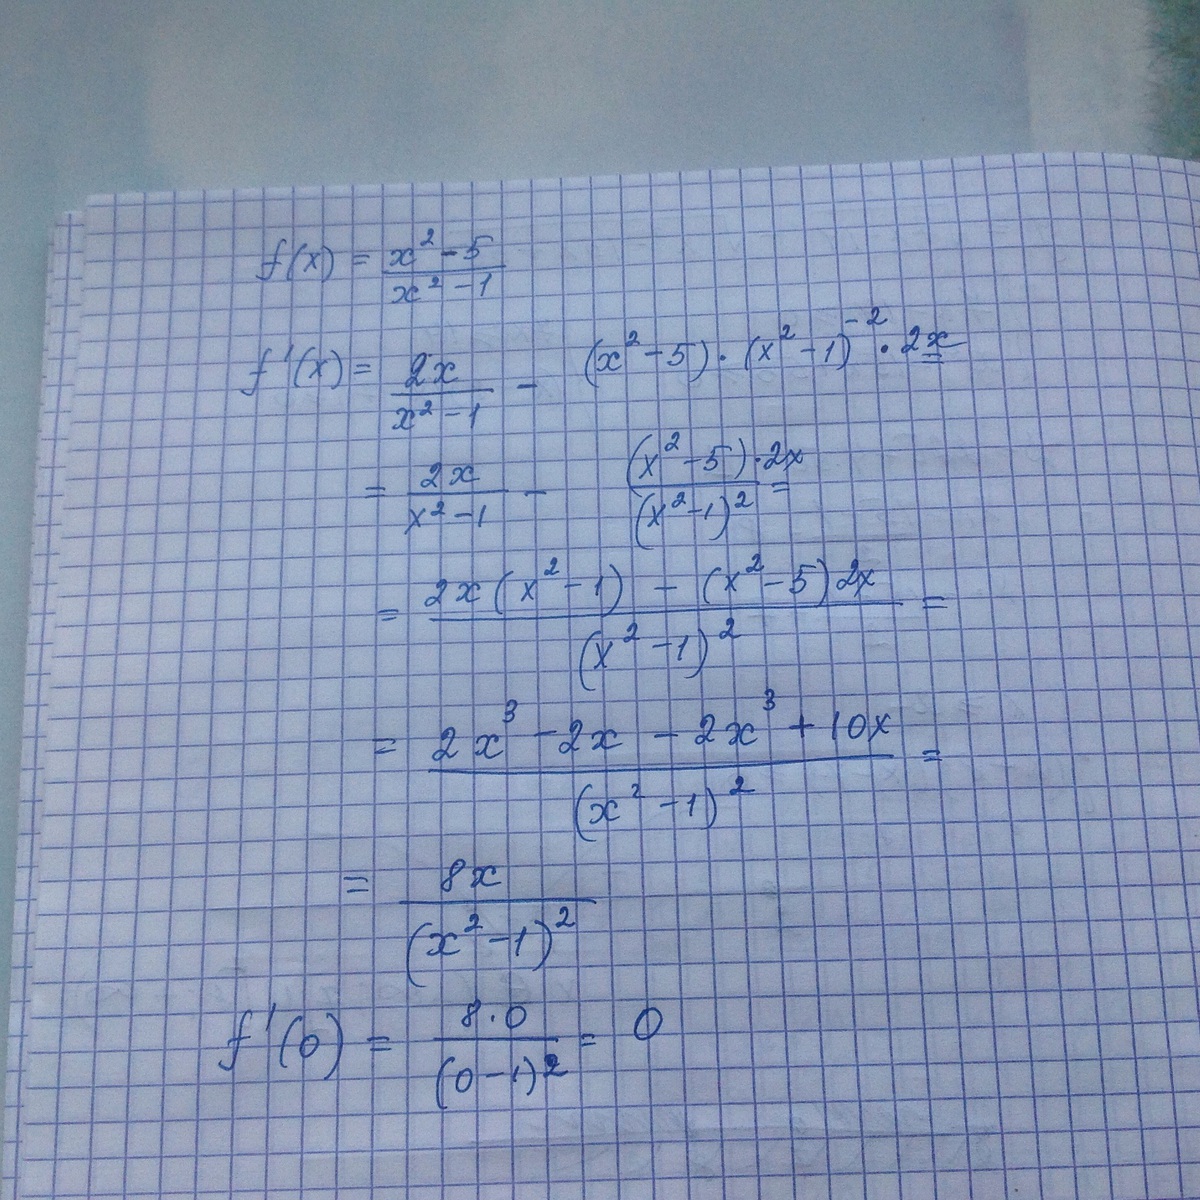 f(x) = (x² - 5)/(x² - 1)
f'(x) = 2x/(x² - 1) - (x² - 5) · (x² - 1)⁻² · 2x
= 2x/(x² - 1) - ((x² - 5) · 2x)/(x² - 1)² =
= (2x(x² - 1) - (x² - 5)2x)/(x² - 1)² =
= (2x³ - 2x - 2x³ + 10x)/(x² - 1)² =
= 8x/(x² - 1)²
f'(0) = (8·0)/(0 - 1)² = 0